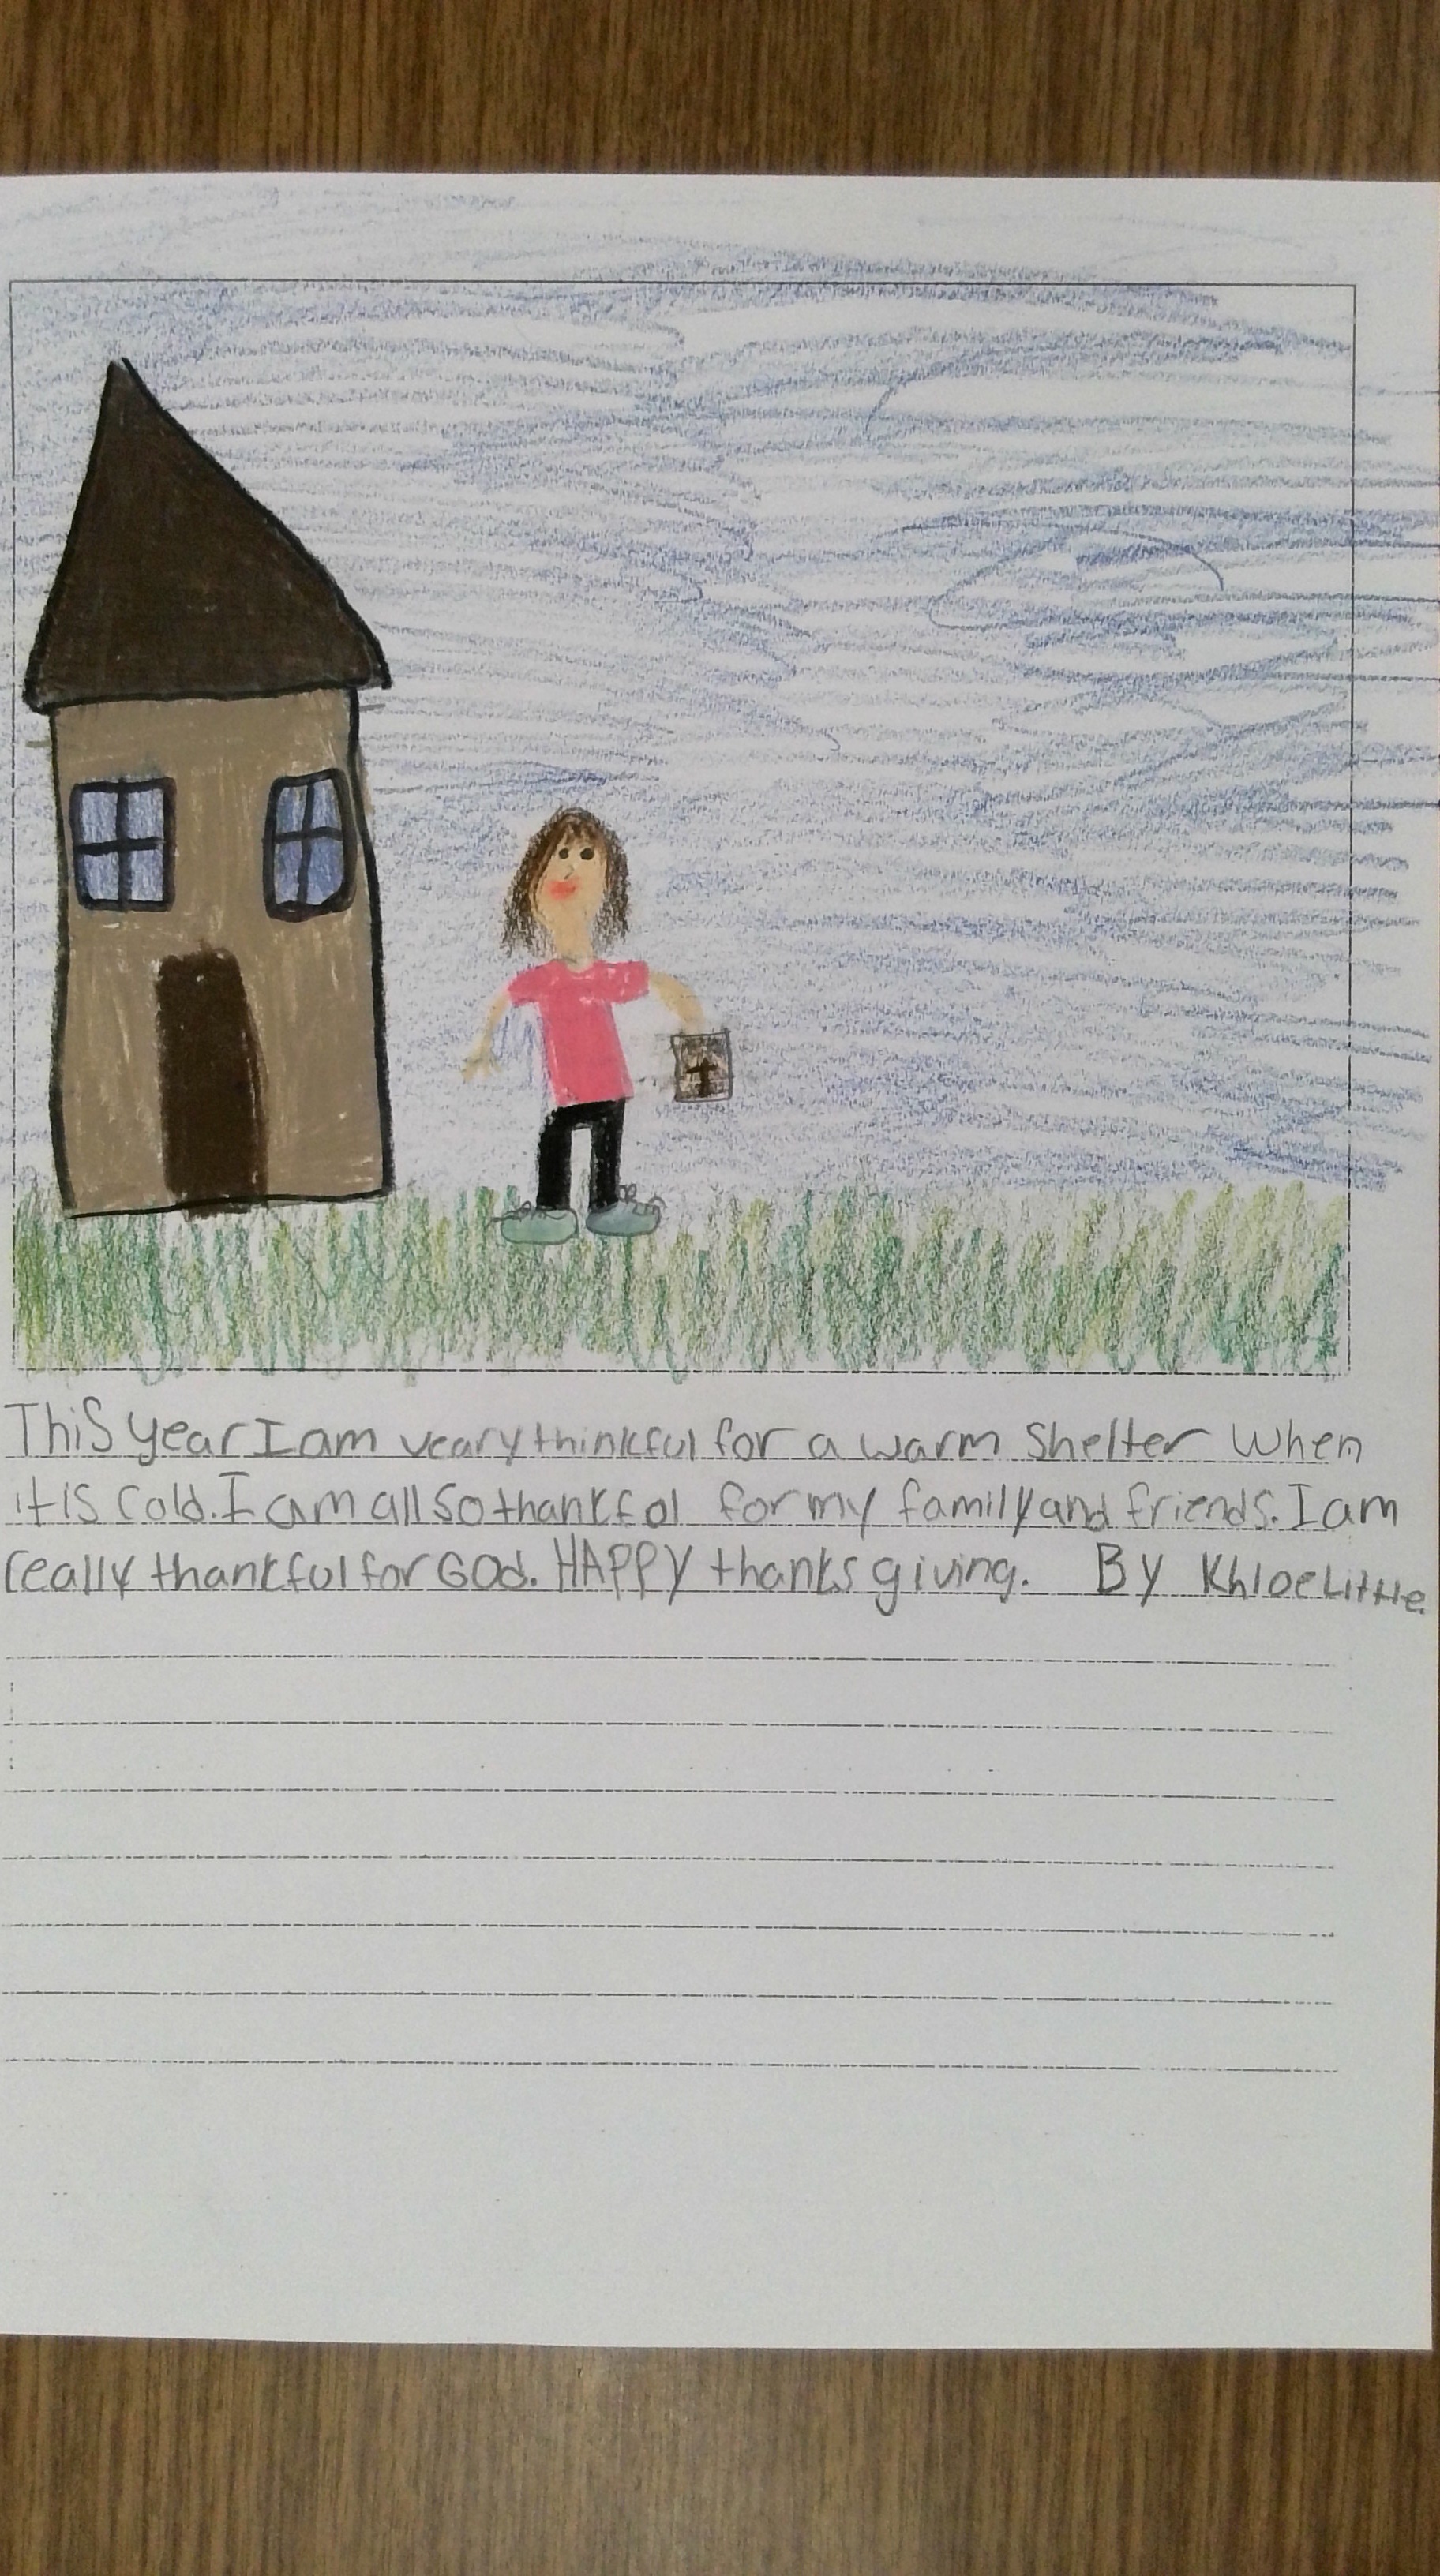 This year I am veary thinkful for a warm shelter when
it is cold. I am all so thankfol for my family and friends. I am
really thankful for God. HAPPY thanks giving. By Khloe Little